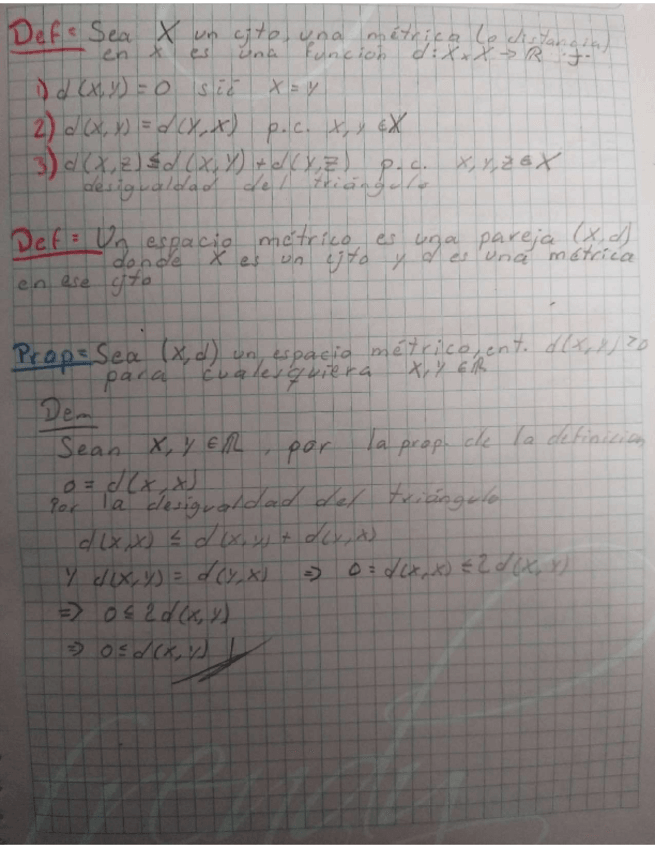 Def: Sea X un cjto, una métrica (o distancia)
en X es una función d: X × X → ℝ t.q.
1) d(x,y) = 0 sii x = y
2) d(x,y) = d(y,x) p.c. x,y ∈ X
3) d(x,z) ≤ d(x,y) + d(y,z) p.c. x,y,z ∈ X
desigualdad del triángulo
Def: Un espacio métrico es una pareja (X,d)
donde X es un cjto y d es una métrica
en ese cjto
Prop: Sea (X,d) un espacio métrico, ent. d(x,y) ≥ 0
para cualesquiera x,y ∈ ℝ
Dem
Sean x,y ∈ ℝ, por la prop. de la definición
0 = d(x,x)
Por la desigualdad del triángulo
d(x,x) ≤ d(x,y) + d(y,x)
y d(x,y) = d(y,x) ⇒ 0 = d(x,x) ≤ 2d(x,y)
⇒ 0 ≤ 2d(x,y)
⇒ 0 ≤ d(x,y)